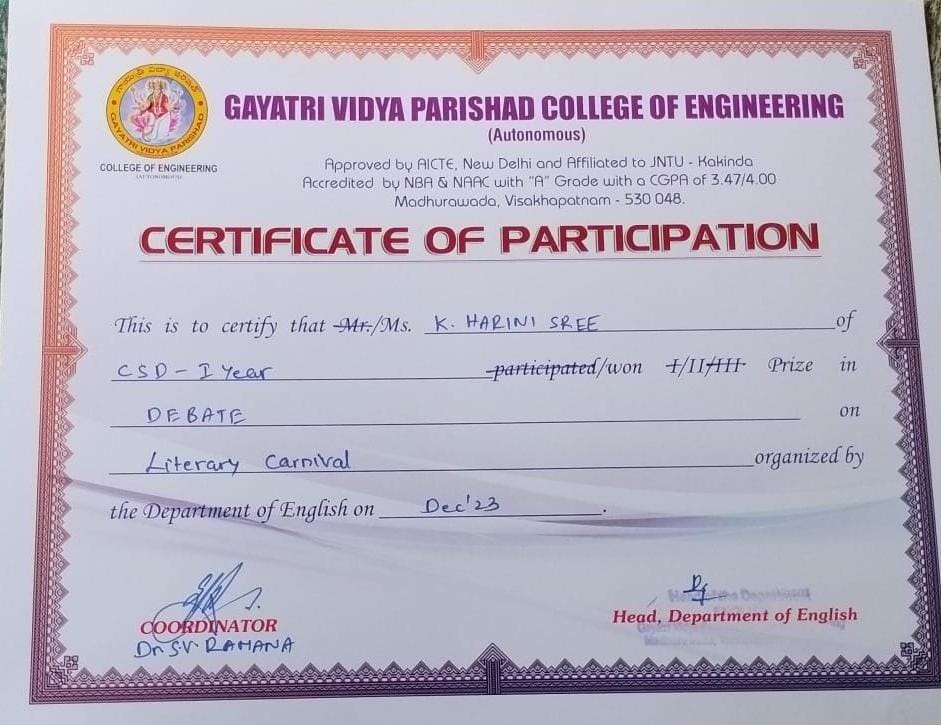 గాయత్రీ విద్యా పరిషత్
GAYATRI VIDYA PARISHAD
COLLEGE OF ENGINEERING
(AUTONOMOUS)
GAYATRI VIDYA PARISHAD COLLEGE OF ENGINEERING
(Autonomous)
Approved by AICTE, New Delhi and Affiliated to JNTU - Kakinda
Accredited by NBA & NAAC with "A" Grade with a CGPA of 3.47/4.00
Madhurawada, Visakhapatnam - 530 048.
CERTIFICATE OF PARTICIPATION
This is to certify that Mr./Ms. K. HARINI SREE of
CSD - I Year participated/won I/II/III Prize in
DEBATE on
Literary Carnival organized by
the Department of English on Dec'23.
COORDINATOR
Dr. S.V. RAMANA
Head of the Department
Head, Department of English